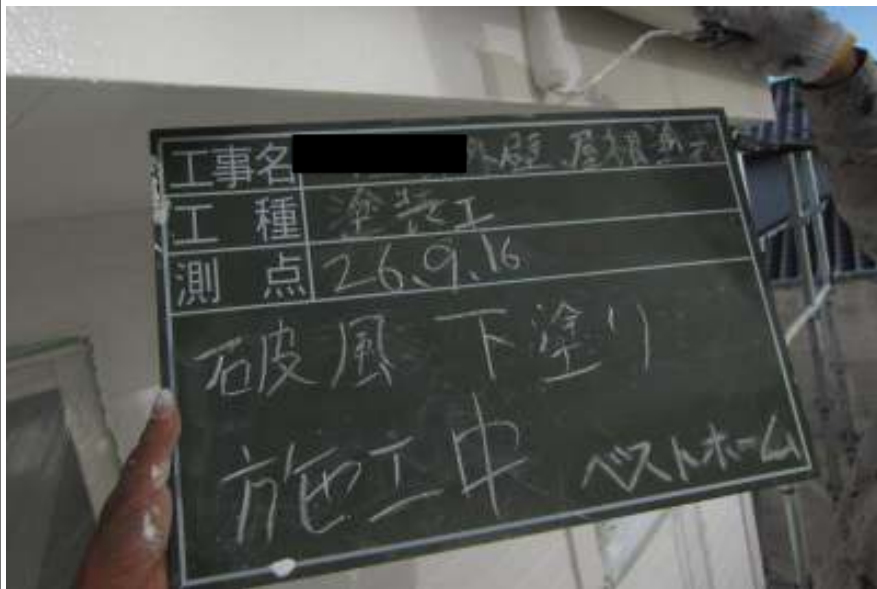 工事名 外壁、屋根塗装
工種 塗装工
測点 26.9.16
破風 下塗り
施工中 ベストホーム